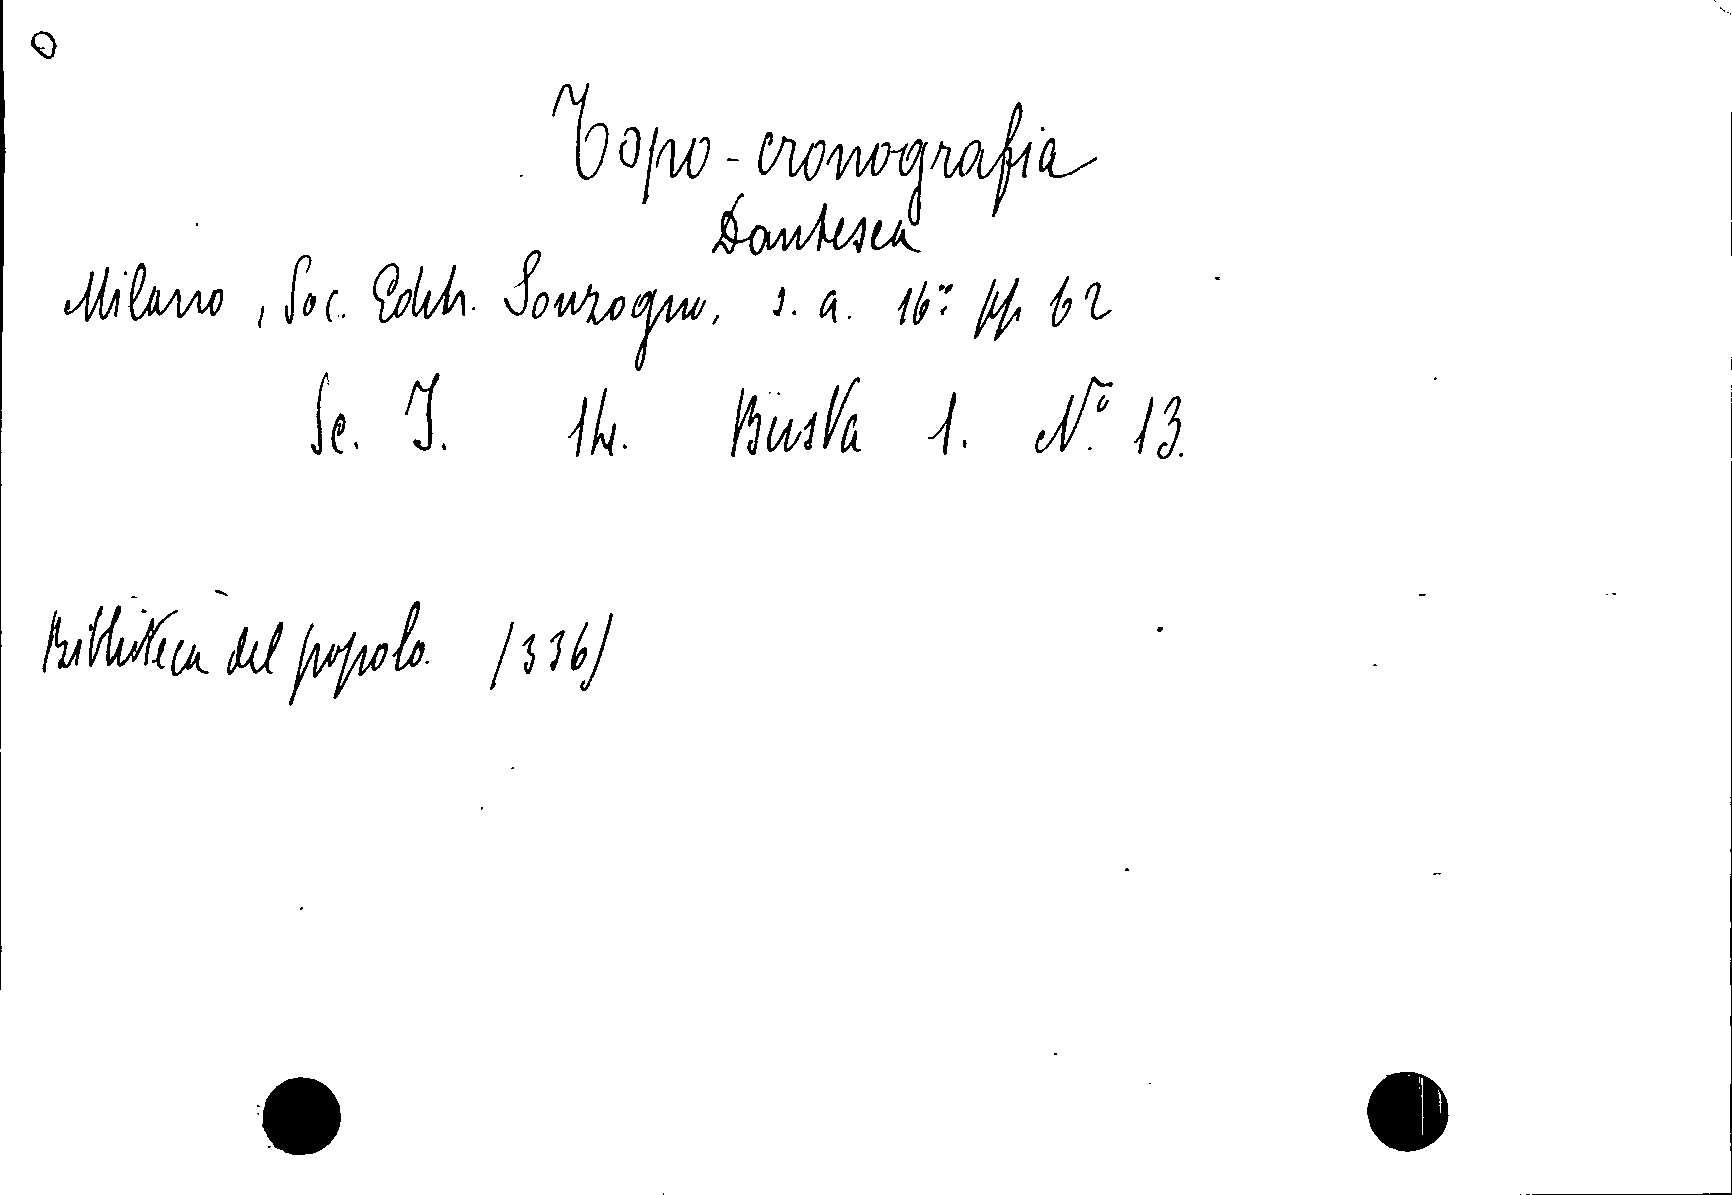 O
Topo-cronografia
Dantesca
Milano, Soc. Editr. Sonzogno, s. a. 16º pp 62
Sc. I. Busta 1. Nº 13.
Biblioteca del popolo. (336)